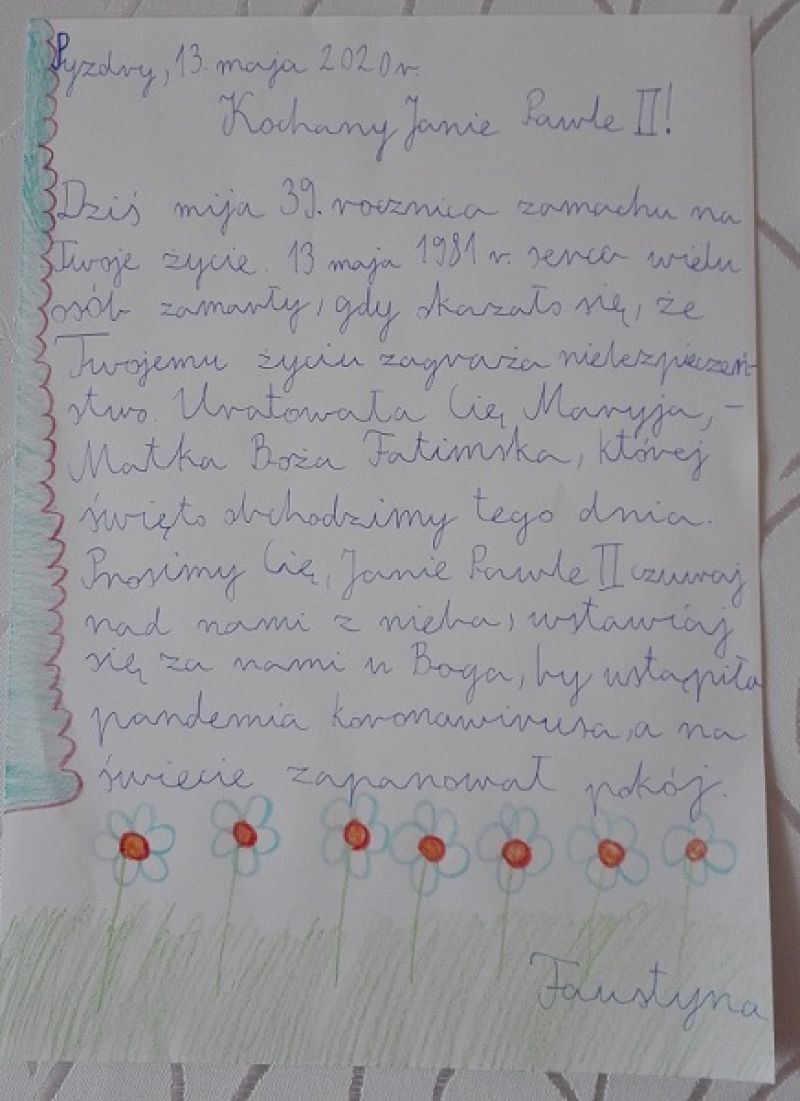 Pyzdry, 13. maja 2020 r.
Kochany Janie Pawle II!
Dziś mija 39. rocznica zamachu na
Twoje życie. 13 maja 1981 r. serca wielu
osób zamarły, gdy okazało się, że
Twojemu życiu zagraża niebezpieczeń-
stwo. Uratowała Cię Maryja, -
Matka Boża Fatimska, której
święto obchodzimy tego dnia.
Prosimy Cię, Janie Pawle II czuwaj
nad nami z nieba, wstawiaj
się za nami u Boga, by ustąpiła
pandemia koronawirusa, a na
świecie zapanował pokój.
Faustyna